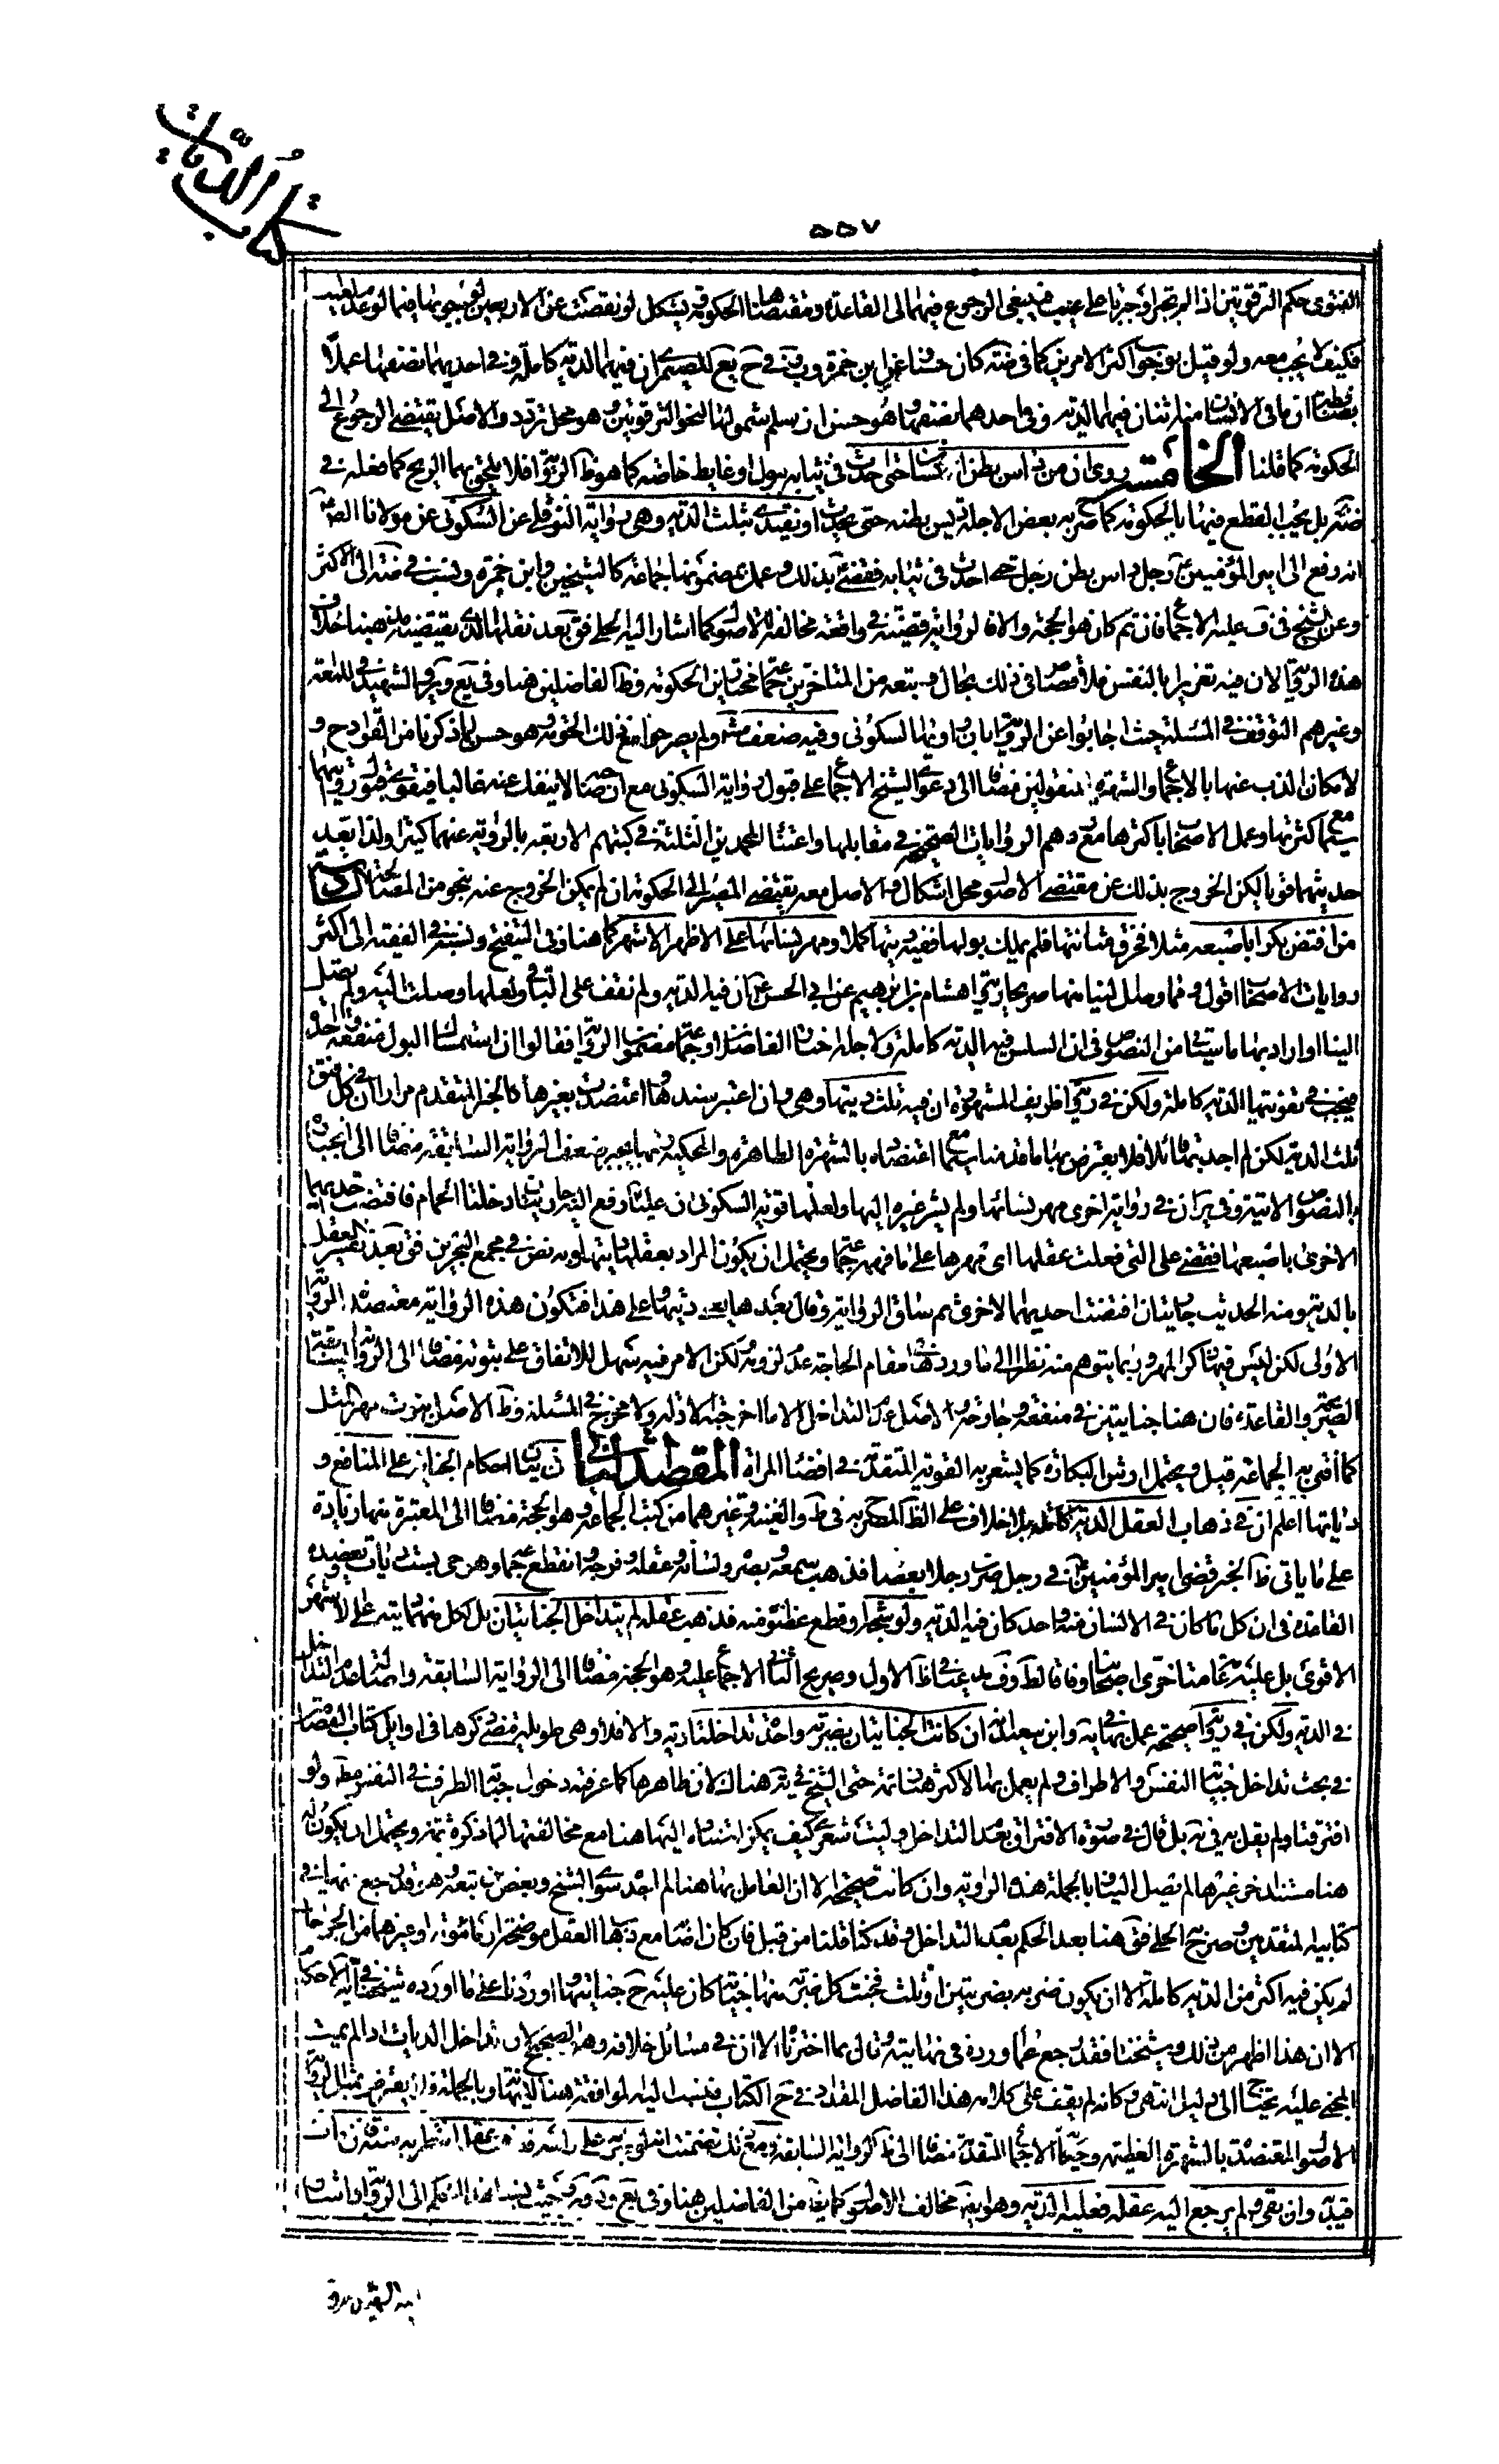 كتاب الديات
٥٥٧
الفتوى حكم الترقوتين اذا لم تجبر او جبرتا على عيب فينبغي الرجوع فيهما الى القاعدة ومقتضاها هنا الحكومة ويشكل لو نقصت عن الاربعين لوجوبها فيما لو عدم العيب
فكيف لا يجب معه ولو قيل بوجوب اكثر الامرين كما في ضه كان حسنا وعن ابن حمزة وفي ح يع للصيمري ان فيهما الدية كاملة وفي احديهما نصفها عملا
ان ما في الانسان منه اثنان فيهما الدية وفي احدهما نصفها وهو حسن ان سلم شمولها لنحو الترقوتين وهو محل تردد والاصل يقتضي الرجوع الى
الحكومة كما قلنا الخامسة روى ان من داس بطن انسان حتى احدث في ثيابه ببول او غايط خاصة كما هو ظ الرواية فلا يلحق بهما الريح كما فعله في
ضه بل يجب القطع فيها بالحكومة كما صرح به بعض الاجلة ديس بطنه حتى يحدث او يفتدي بثلث الدية وهي رواية النوفلي عن السكوني عن مولانا الص
انه رفع الى امير المؤمنين ع رجل داس بطن رجل حتى احدث في ثيابه فقضى بذلك وعمل بمضمونها جماعة كالشيخين وابن حمزة ونسب في ضه الى الاكثر
وعن الشيخ في ف عليه الاجماع فان تم كان هو الحجة والا فالرواية قضية في واقعة مخالفة للاصول كما اشار اليه الحلي فق بعد نقلها الذي يقتضيه مذهبنا خلاف
هذه الرواية لان فيه تغريرا بالنفس فلا قصاص في ذلك بحال وتبعه من المتاخرين جماعة مختارين الحكومة وظ الفاضلين هنا وفي يع وير والشهيد في اللمعة
وغيرهم التوقف في المسئلة حيث اجابوا عن الرواية بان راويها السكوني وفيه ضعف ولم يصرحوا مع ذلك بالحكومة وهو حسن لما ذكرنا من القوادح و
لامكان الذب عنها بالاجماع والشهرة المنقولين مضافا الى دعوى الشيخ الاجماع على قبول رواية السكوني مع ان صاحبه لا ينفك عنه غالبا فيتقوى قبول رواياتهما
سيما مع كثرتها وعمل الاصحاب باكثرها مع ردهم الروايات الصحيحة في مقابلها واعتناء المحمدين الثلثة في كتبهم الاربعة بالرواية عنهما كثيرا ولذا يعد
حديثهما قويا لكن الخروج بذلك عن مقتضى الاصول محل اشكال والاصل معه يقتضي المصير الى الحكومة ان لم يمكن الخروج عنه بنحو من المصالحة السادسة
من افتض بكرا باصبعه مثلا فخرق مثانتها فلم تملك بولها ففيه ديتها كملا ومهر نسائها على الاظهر الاشهر كما هنا وفي التنقيح ونسبه في الفقيه الى اكثر
روايات الاصحاب اقول وفيما وصل الينا منها صريحا رواية هشام بن ابرهيم عن ابي الحسن ع ان فيه الدية ولم نقف على الباقي ولعلها وصلت اليه ولم تصل
الينا او اراد بها ما سيأتي من النصوص في ان السلس فيه الدية كاملة ولاجله اختار الفاضلان وجماعة مضمون الرواية فقالوا ان استمساك البول منفعة واحدة
فيجب في تفويتها الدية كاملة ولكن في رواية ظريف المشهورة ان فيه ثلث ديتها وهي وان اعتبر سندها واعتضدت بغيرها كالخبر المتقدم مرارا ان في كل فتق
ثلث الدية لكن لم اجد بها قائلا فلا يعترض بها ما قدمناه سيما مع اعتضاده بالشهرة الظاهرة والمحكية وبها ينجبر ضعف الرواية السابقة مضافا الى انجباره
بالنصوص الاتية وفي ير ان في رواية اخرى مهر نسائها ولم يشر غيره اليها ولعلها قوية السكوني ان عليا ع رفع اليه جاريتان دخلتا الحمام فافتضت احديهما
الاخرى باصبعها فقضى على التي فعلت عقلها اي مهرها على ما فهمه جماعة ويحتمل ان يكون المراد بعقلها ديتها وبه نص في مجمع البحرين فق بعد تفسير العقل
بالدية ومنه الحديث جاريتان افتضت احديهما الاخرى ثم ساق الرواية وقال بعدها يعني ديتها وعلى هذا فتكون هذه الرواية معتضدة للرواية
الاولى لكن ليس فيها ذكر المهر وربما يتوهم منه نظرا الى ما ورودها في مقام الحاجة عدم لزومه لكن الامر فيه سهل للاتفاق على ثبوته مضافا الى الرواية السابقة
الصريحة والقاعدة فان هنا جنايتين في منفعة وجارحة والاصل عدم التداخل الا ما اخرجته الادلة ولا مخرج في المسئلة وظ الاصل ثبوت مهر المثل
كما افتى به الجماعة قيل ويحتمل ارش البكارة كما يشعر به القوية المتقدمة في افضاء المراة المقصد الثاني في بيان احكام الجناية على المنافع و
دياتها اعلم ان في ذهاب العقل الدية كاملة بلا خلاف على الظ المصرح به في ط والغنية وغيرهما من كتب الجماعة وهو الحجة مضافا الى المعتبرة منها زيادة
على ما ياتي ظ الخبر قضى امير المؤمنين ع في رجل ضرب رجلا بعصا فذهب سمعه وبصره ولسانه وعقله وفرجه وانقطع جماعه وهو حي بست ديات ويعضده
القاعدة في ان كل ما كان في الانسان منه واحد كان فيه الدية ولو شجه او قطع عضوا منه فذهب عقله لم يتداخل الجنايتان بل لكل منهما ديته على الاشهر
الاقوى بل عليه عامة متاخري اصحابنا وفاقا لط وف مدعيا في ظ الاول وصريح الثاني الاجماع عليه وهو الحجة مضافا الى الرواية السابقة واصالة عدم التداخل
في الدية ولكن في رواية صحيحة عمل بها في النهاية وابن سعيد انه ان كانت الجنايتان بضربة واحدة تداخلتا دية والا فلا وهي طويلة مضى ذكرها في اوايل كتاب القصاص
في بحث تداخل جناية النفس والاطراف ولم يعمل بها الاكثر هنا ثمة حتى الشيخ في يه هناك لان ظاهرها كما عرفته دخول جناية الطرف في النفس مط ولو
افترقتا ولم يقل به في يه بل قال في صورة الافتراق بعدم التداخل وليت شعري كيف يمكن استناده اليها هنا مع مخالفتها لما ذكره ثمة ويحتمل ان يكون له
هنا مستند اخر غيرها لم يصل الينا وبالجملة هذه الرواية وان كانت صحيحة الا ان العامل بها هنا لم اجده سوى الشيخ وبعض من تبعه وهو قد رجع عنها في
كتابيه المتقدمين وصرح الحلي فق هنا بعد الحكم بعدم التداخل وقد كنا قلنا من قبل فان كان اصابه مع ذهاب العقل موضحة او مامومة او غيرهما من الجراحات
لم يكن فيه اكثر من الدية كاملة الا ان يكون ضربه بضربتين او ثلث فجنت كل ضربة منها جناية كان عليه ح جنايتها واوردناه على ما اورده شيخنا في نهايته الاحكام
الا ان هذا اظهر من ذلك وشيخنا فقد رجع عما ورده في نهايته وقال بما اخترناه الان في مسائل خلافه وهو الصحيح لان تداخل الديات اذا لم يمت
المجني عليه يحتاج الى دليل انتهى وكانه لم يقف على كلامه هذا الفاضل المقداد في ح الكتاب فنسب اليه الموافقة هنا للنهاية وبالجملة فلا يعترض بمثل الرواية
الاصول المعتضدة بالشهرة العظيمة وحكاية الاجماع المتقدمة مضافا الى ظ الرواية السابقة ومع ذلك تضمنت انه لو ضرب على راسه فذهب عقله انتظر به سنة فان مات
قيد به وان بقي ولم يرجع اليه عقله فعليه الدية وهو ايضا مخالف للاصول كما يظ من الفاضلين هنا وفي يع وير حيث نسبا هذا الحكم الى الرواية